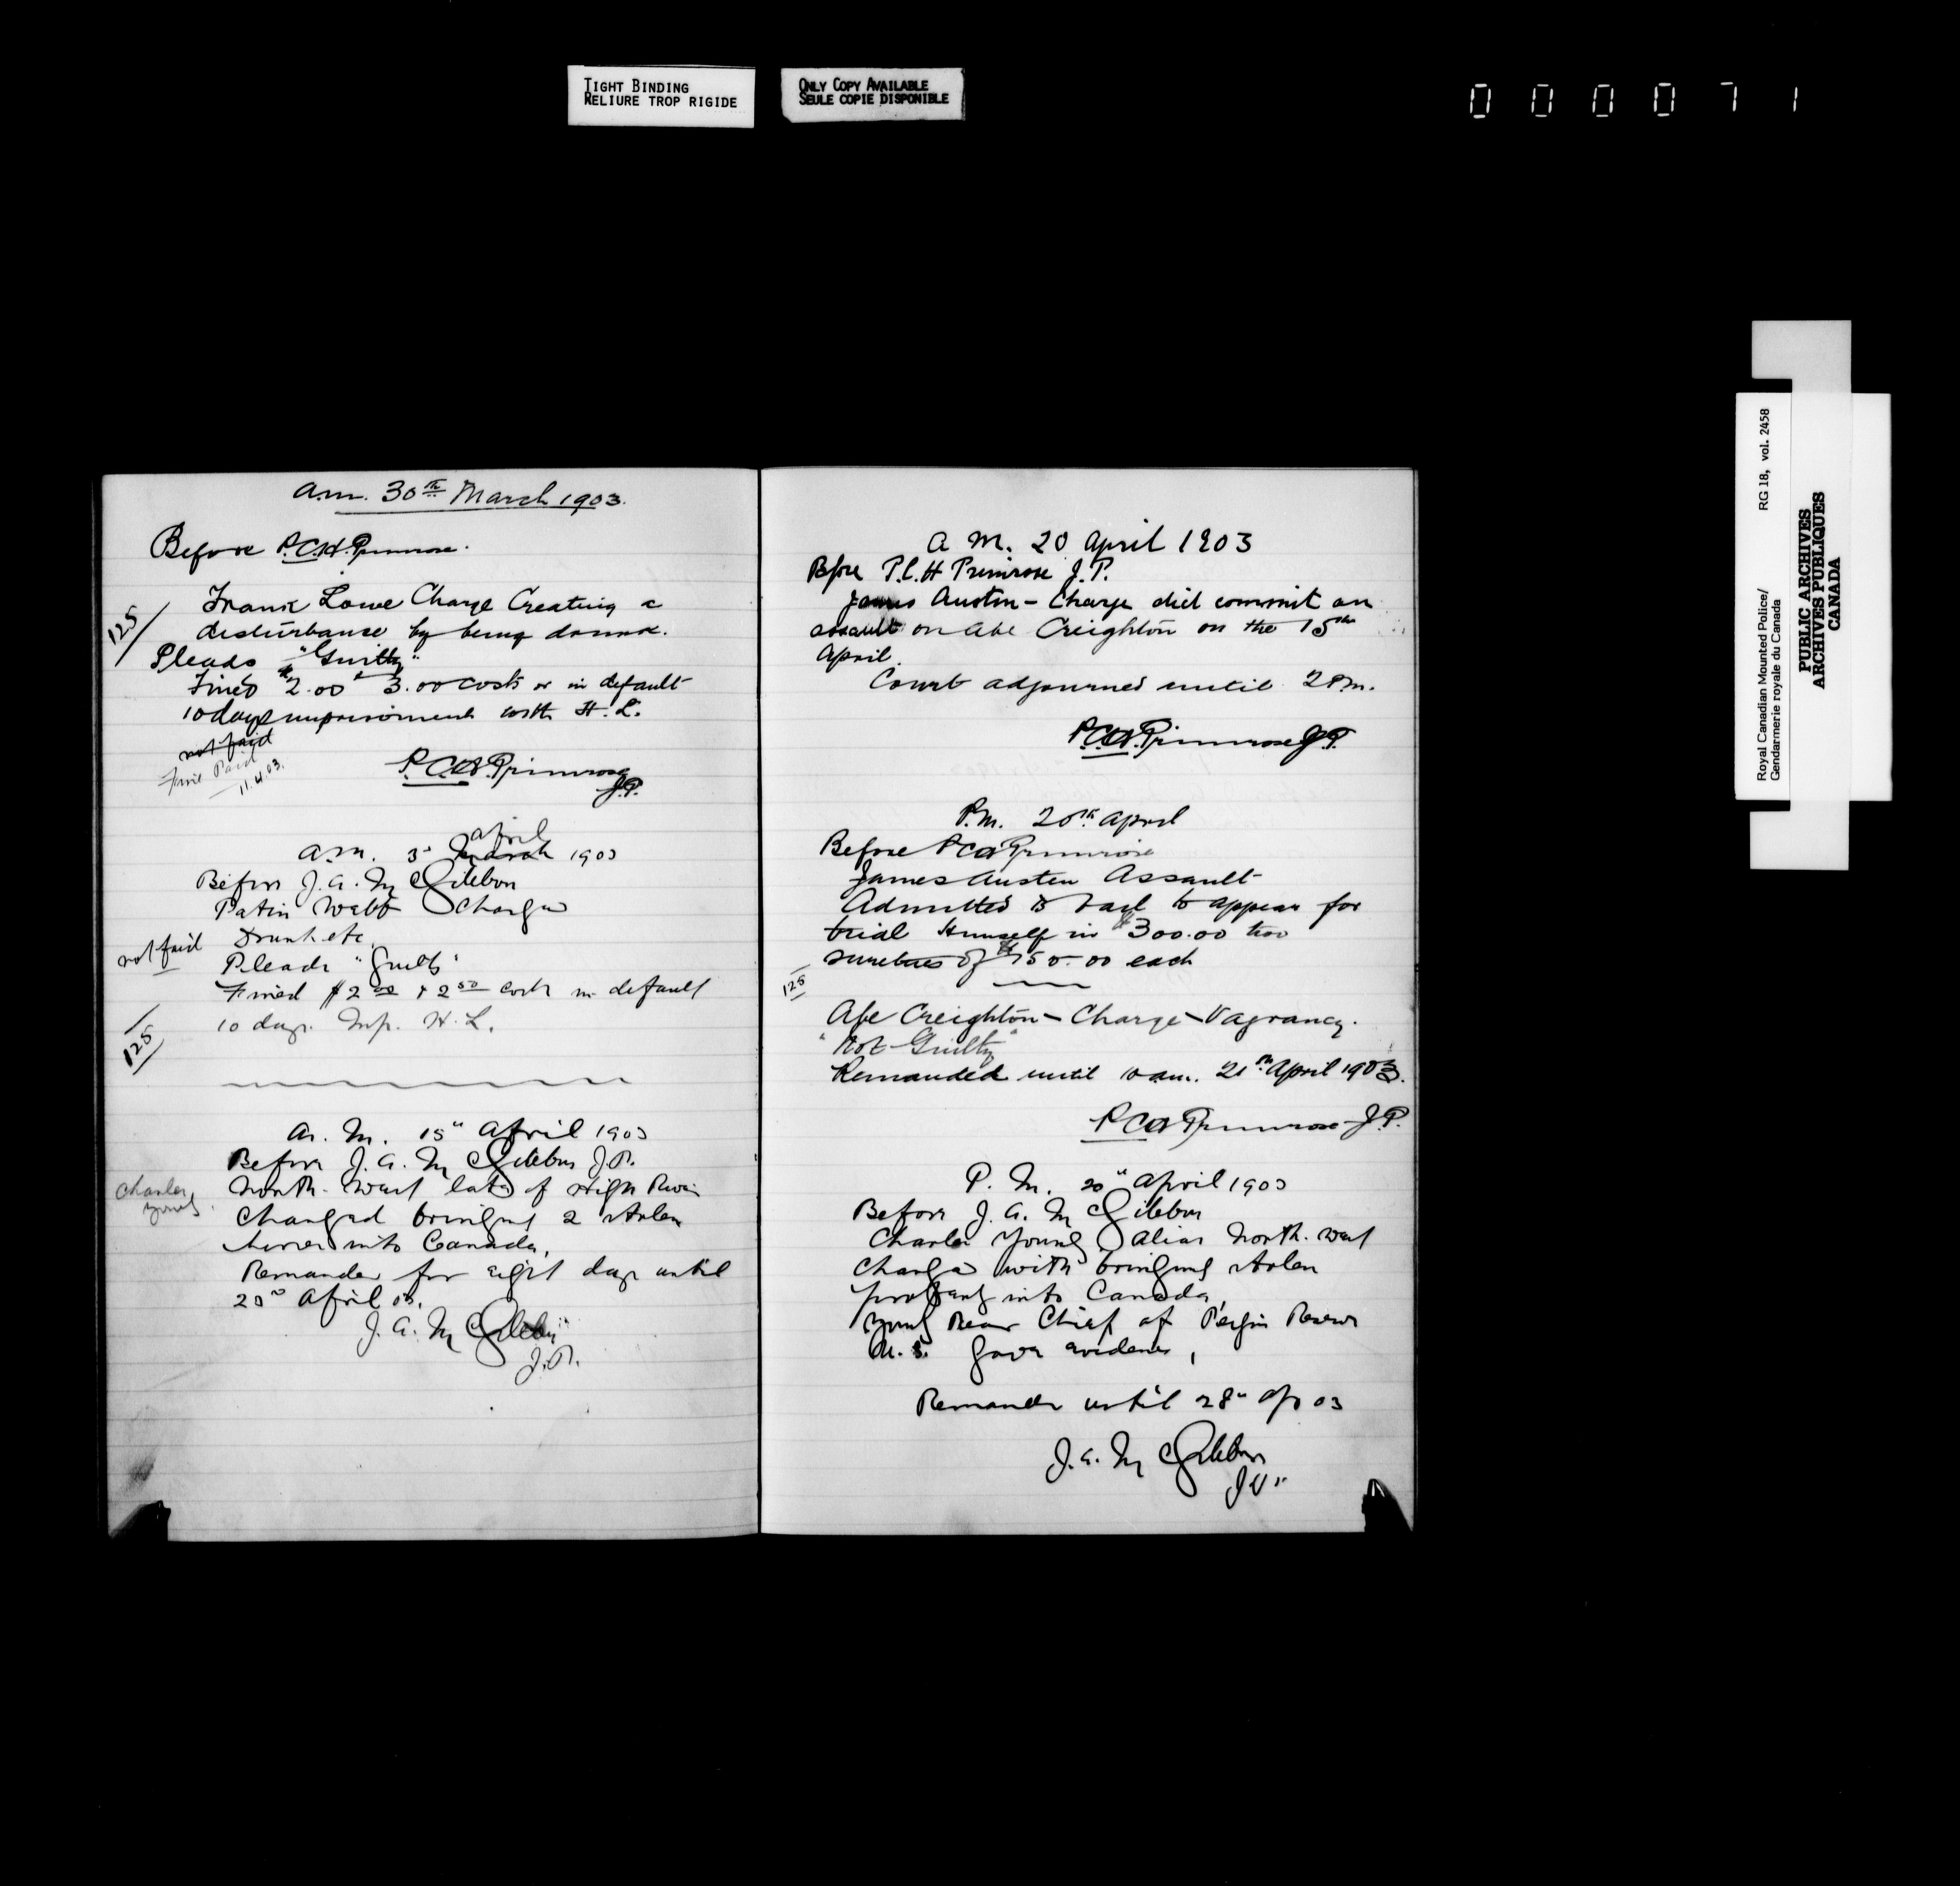 TIGHT BINDING
RELIURE TROP RIGIDE
ONLY COPY AVAILABLE
SEULE COPIE DISPONIBLE
000071
a.m. 30th March 1903.
Before P.C.H. Primrose.
125/
Frank Lowe Charge Creating a
disturbance by being drunk.
Pleads "Guilty"
Fined $2.00 & 3.00 costs or in default
10 days imprisonment with H. L.
not paid
Fine Paid
11.4.03.
P.C.H. Primrose
J.P.
april
a.m. 3" March 1903
Before J. A. McGibbon
Patin Webb Charged
not paid
Drunk etc.
Pleads "Guilty"
Fined $2 00 & 2 50 costs in default
10 days. Imp. H. L.
125
A. M. 15" April 1903
Before J. A. McGibbon J.P.
Charles
Young
North-West late of High River
Charged bringing 2 stolen
horses into Canada,
Remanded for eight days until
23rd April 03.
J. A. McGibbon
J.P.
A M. 20 April 1903
Bfore P.C.H Primrose J.P.
James Austin - Charge did commit an
assault on Abe Creighton on the 15th
April.
Court adjourned until 2 Pm.
P.C.H. Primrose J.P.
P.M. 20th April
Before P C H Primrose
James Austen Assault
Admitted to bail to appear for
trial Himself in $300.00 two
sureties of $150.00 each
125
Abe Creighton - Charge - Vagrancy.
"Not Guilty"
Remanded until 10 am. 21st April 1903.
P C H Primrose J.P.
P. M. 20" April 1903
Before J. A. McGibbon
Charles Young alias North-West
Charged with bringing stolen
property into Canada,
Young Bear Chief of Peigan Reserve
U.S. gave evidence,
Remanded until 28" Ap 03
J. A. McGibbon
J.P.
Royal Canadian Mounted Police/
Gendarmerie royale du Canada
RG 18, vol. 2458
PUBLIC ARCHIVES
ARCHIVES PUBLIQUES
CANADA